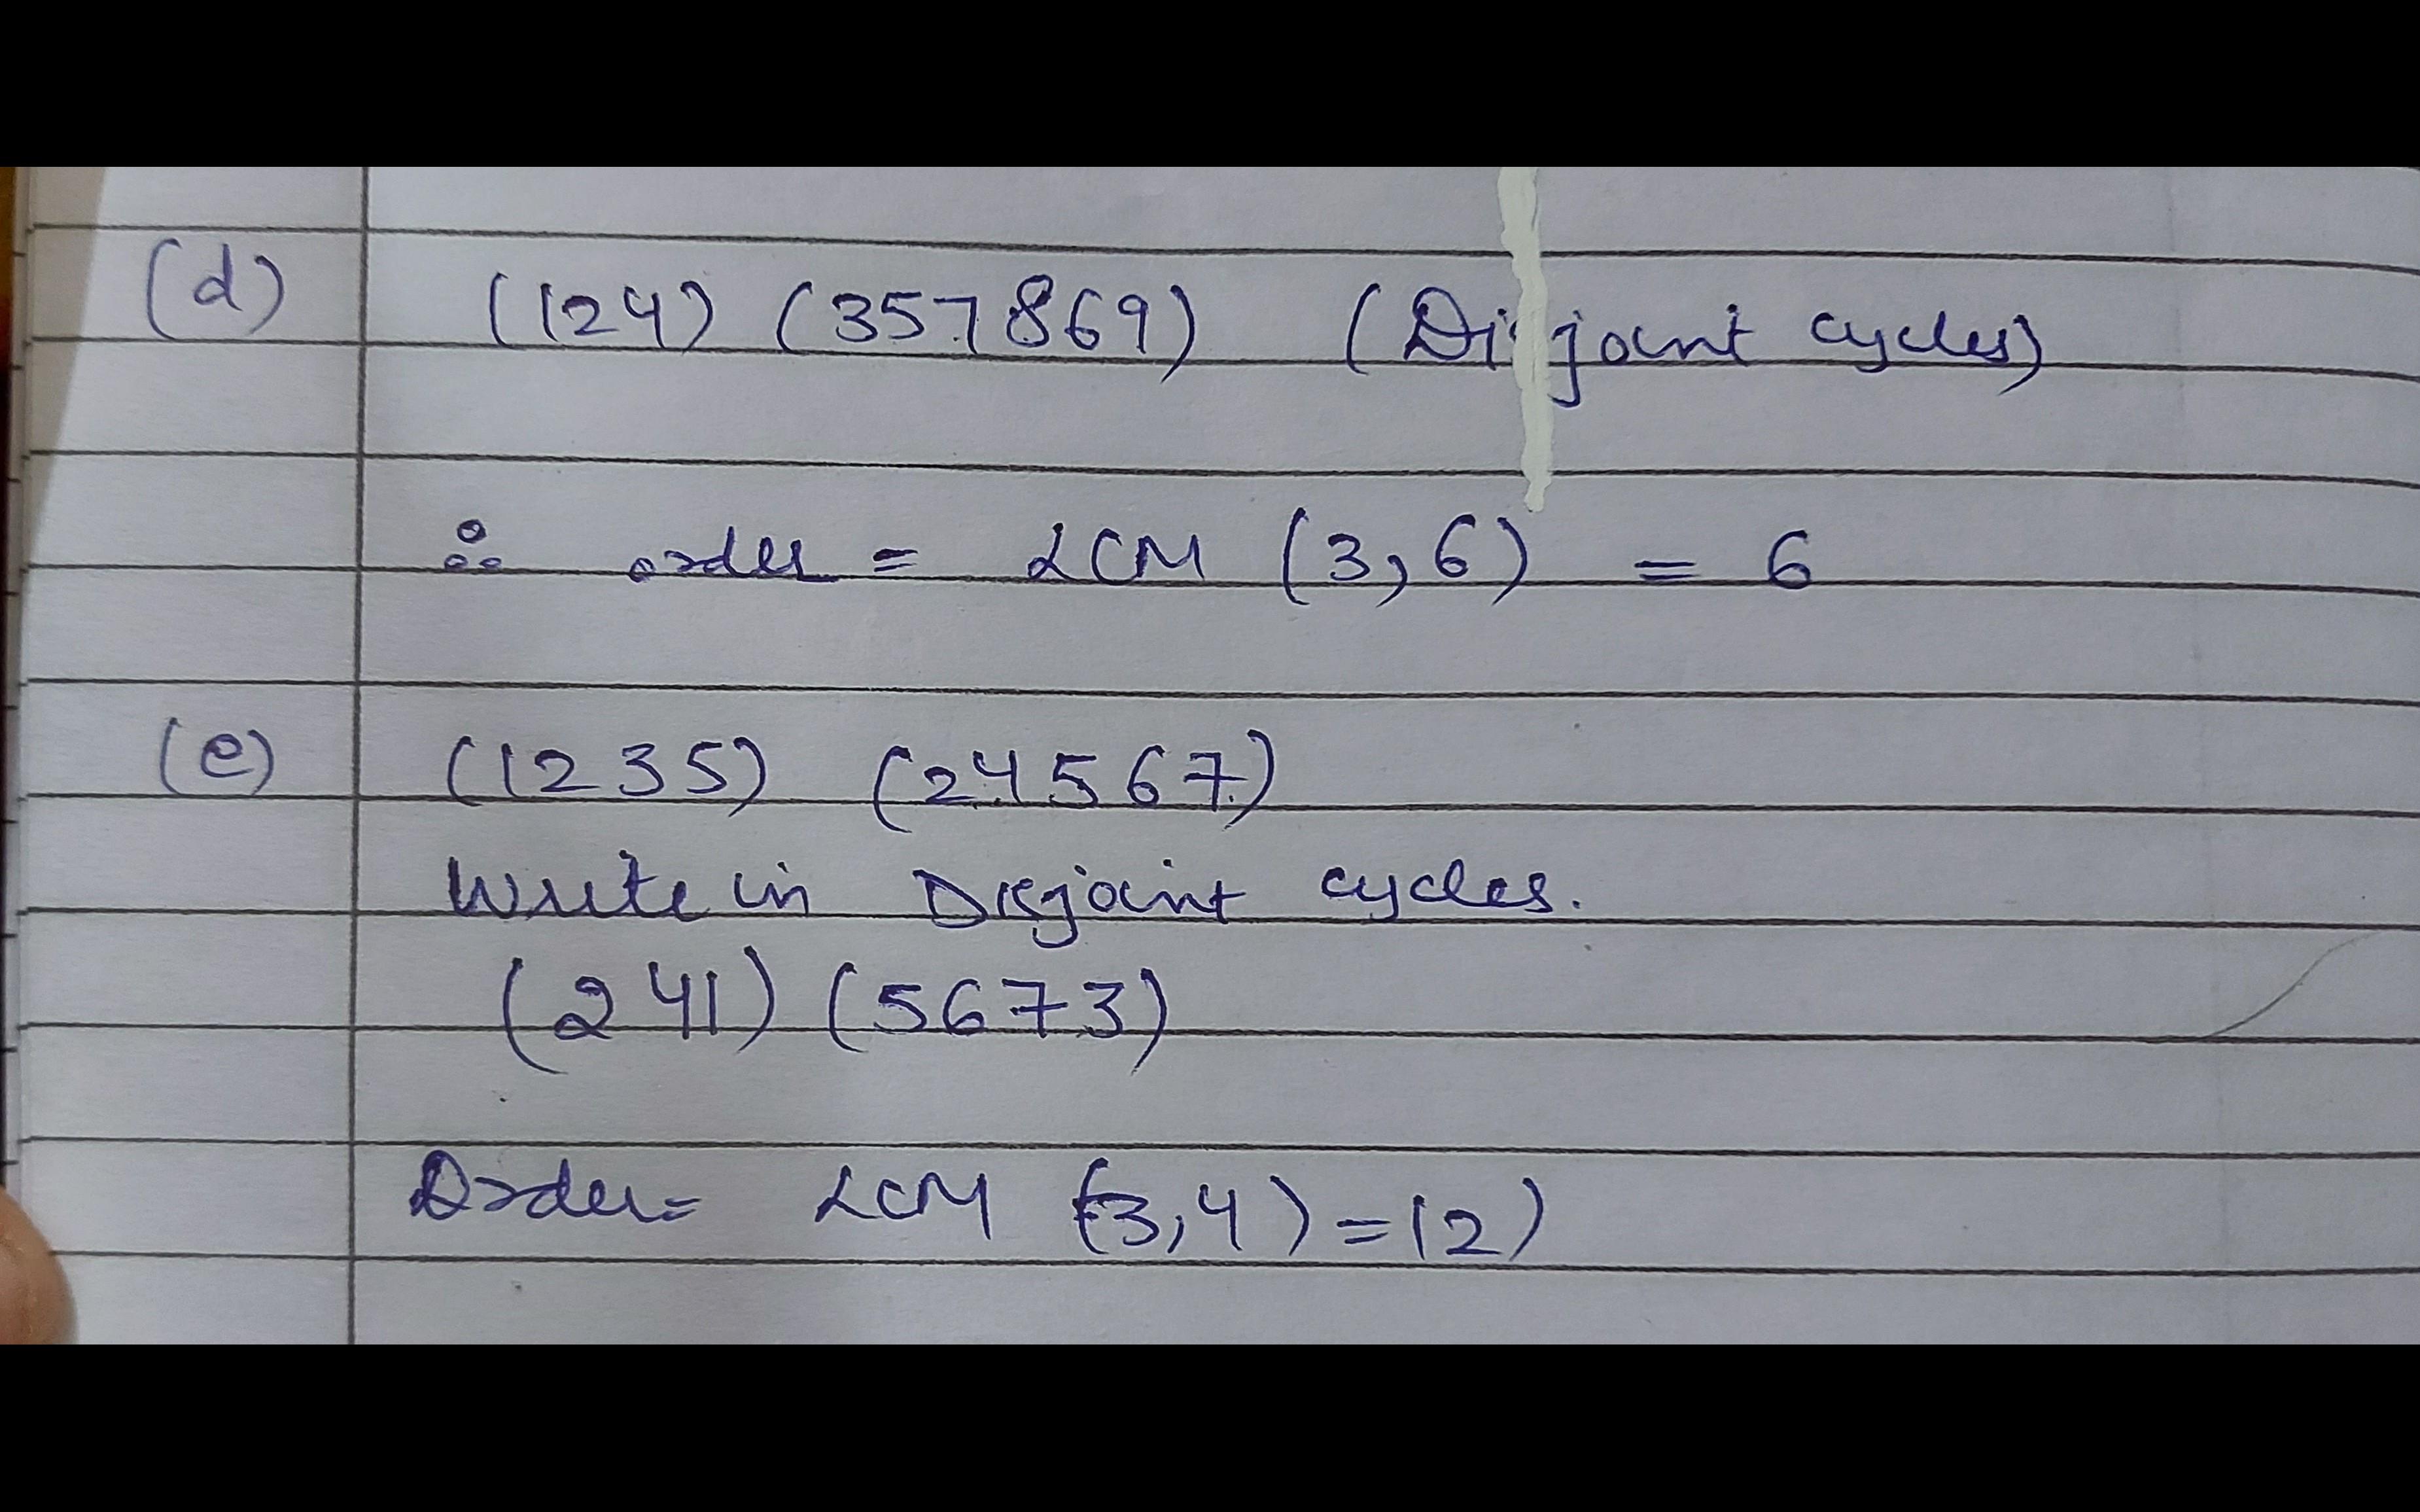 (d) (124) (357869) (Disjoint cycles)
∴ order = LCM (3,6) = 6
(e) (1235) (24567)
Write in Disjoint cycles.
(241) (5673)
Order= LCM (3,4) = 12)